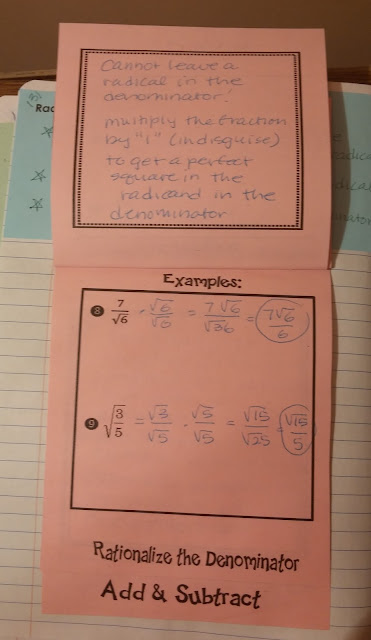 Cannot leave a
radical in the
denominator!
multiply the fraction
by "1" (in disguise)
to get a perfect
square in the
radicand in the
denominator
Examples:
8 7/√6 · √6/√6 = 7√6/√36 = 7√6/6
9 √(3/5) = √3/√5 · √5/√5 = √15/√25 = √15/5
Rationalize the Denominator
Add & Subtract